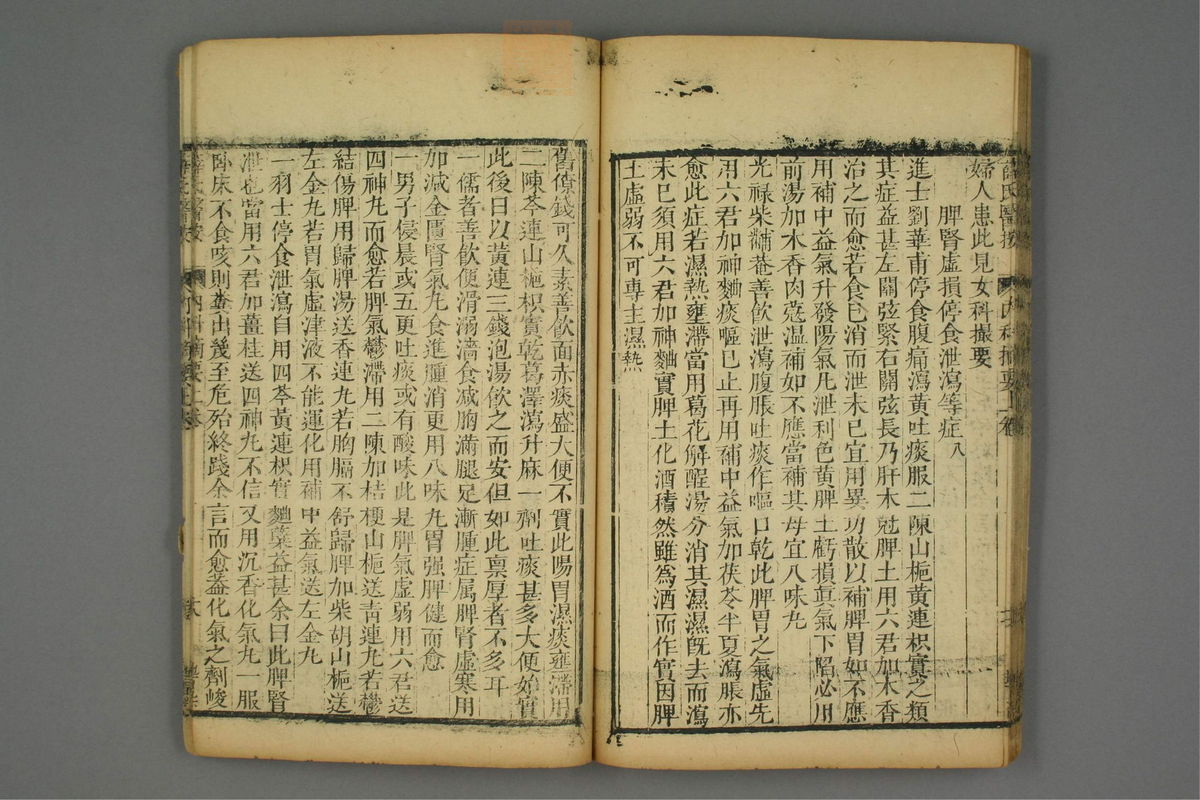 薛氏醫按
內科摘要上卷
婦人患此見女科撮要
脾腎虛損停食泄瀉等症八
進士劉華甫停食腹痛瀉黃吐痰服二陳山梔黃連枳實之類
其症益甚左關弦緊右關弦長乃肝木尅脾土用六君加木香
治之而愈若食已消而泄未已宜用異功散以補脾胃如不應
用補中益氣升發陽氣凡泄利色黃脾土虧損眞氣下陷必用
前湯加木香肉蔻溫補如不應當補其母宜八味丸
光祿柴黼菴善飲泄瀉腹脹吐痰作嘔口乾此脾胃之氣虛先
用六君加神麯痰嘔已止再用補中益氣加茯苓半夏瀉脹亦
愈此症若濕熱壅滯當用葛花解醒湯分消其濕濕旣去而瀉
未已須用六君加神麯實脾土化酒積然雖爲酒而作實因脾
土虛弱不可專主濕熱
舊僚錢可久素善飲面赤痰盛大便不實此腸胃濕痰壅滯用
二陳芩連山梔枳實乾葛澤瀉升麻一劑吐痰甚多大便始實
此後日以黃連三錢泡湯飲之而安但如此禀厚者不多耳
一儒者善飲便滑溺濇食減胸滿腿足漸腫症属脾腎虛寒用
加減金匱腎氣丸食進腫消更用八味丸胃强脾健而愈
一男子侵晨或五更吐痰或有酸味此是脾氣虛弱用六君送
四神丸而愈若脾氣鬱滯用二陳加桔梗山梔送青連丸若鬱
結傷脾用歸脾湯送香連丸若胸膈不舒歸脾加柴胡山梔送
左金丸若胃氣虛津液不能運化用補中益氣送左金丸
一羽士停食泄瀉自用四苓黃連枳實麯蘖益甚余曰此脾腎
泄也當用六君加薑桂送四神丸不信又用沉香化氣丸一服
卧床不食咳則糞出幾至危殆終踐余言而愈葢化氣之劑峻
薛氏醫按
內科摘要上卷